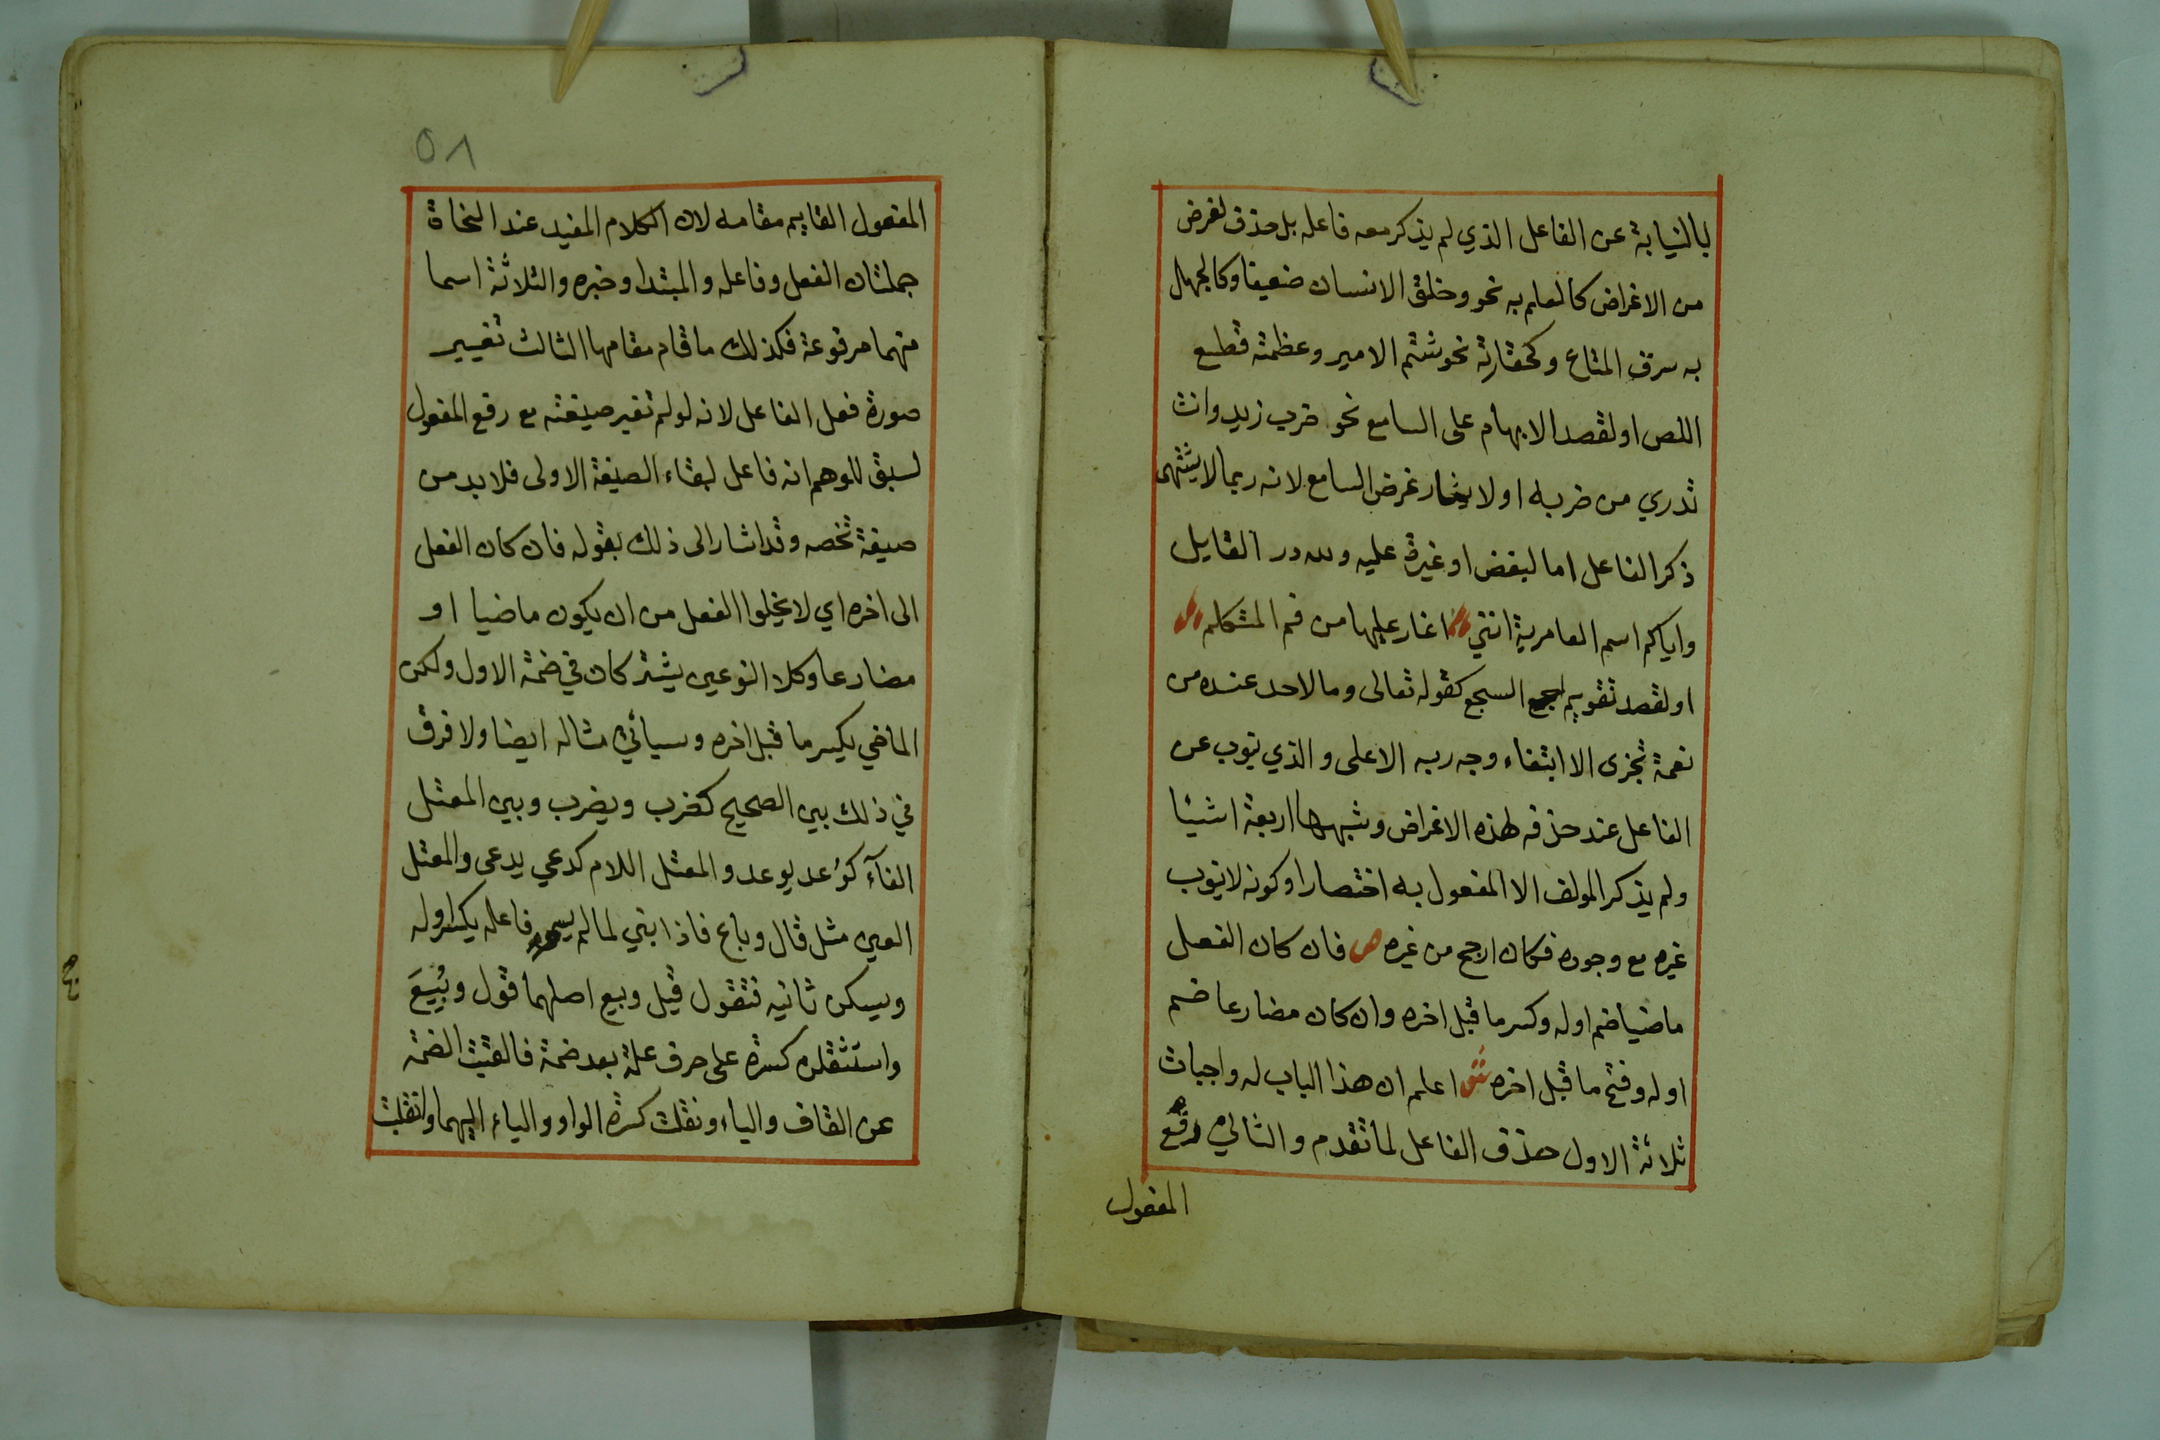 بالنيابة عن الفاعل الذي لم يذكر معه فاعله بل حذف لغرض
من الاغراض كالعلم به نحو وخلق الانسان ضعيفا وكالجهل
به سرق المتاع وكحقارته نحو شتم الامير وعظمته قطع
اللص او لقصد الابهام على السامع نحو ضرب زيد وانت
تدري من ضربه او لا غرض السامع لانه ربما لا يشتهى
ذكر الفاعل اما لبغض او غيرة عليه ولله در القايل
واياكم اسم العامرية انني اغار عليها من فم المتكلم
او لقصد تقويم السجع كقوله تعالى وما لاحد عنده من
نعمة تجزى الا ابتغاء وجه ربه الاعلى والذي ينوب عن
الفاعل عند حذفه لهذه الاغراض وشبهها اربعة اشيا
ولم يذكر المولف الا المفعول به اختصارا وكونه لا ينوب
غيره مع وجوده فكان ارجح من غيره ص فان كان الفعل
ماضيا ضم اوله وكسر ما قبل اخره وان كان مضارعا ضم
اوله وفتح ما قبل اخره ش اعلم ان هذا الباب له واجبات
ثلاثة الاول حذف الفاعل لما تقدم والثاني رفع
المفعول
٥٨
المفعول القايم مقامه لان الكلام المفيد عند النحاة
جملتان الفعل وفاعله والمبتدا وخبره والثلاثة اسما
منهما مرفوعة فكذلك ما قام مقامها الثالث تغيير
صورة فعل الفاعل لانه لو لم تغير صيغته مع رفع المفعول
لسبق للوهم انه فاعل لبقاء الصيغة الاولى فلا بد من
صيغة تخصه وقد اشار الى ذلك بقوله فان كان الفعل
الى اخره اي لا يخلوا الفعل من ان يكون ماضيا او
مضارعا وكلا النوعين يشتركان في ضمة الاول ولكن
الماضي يكسر ما قبل اخره وسياتي مثاله ايضا ولا فرق
في ذلك بين الصحيح كضرب ويضرب وبين المعتل
الفآء كوُعد يوعد والمعتل اللام كدعي يدعى والمعتل
العين مثل قال وباع فاذا بني لما لم يسم فاعله يكسر اوله
ويسكن ثانيه فتقول قيل وبيع اصلهما قول وبُيِعَ
واستثقلت كسرة على حرف علة بعد ضمة فالقيت الضمة
عن القاف والباء ونقلت كسرة الواو والياء اليهما وانقلبت